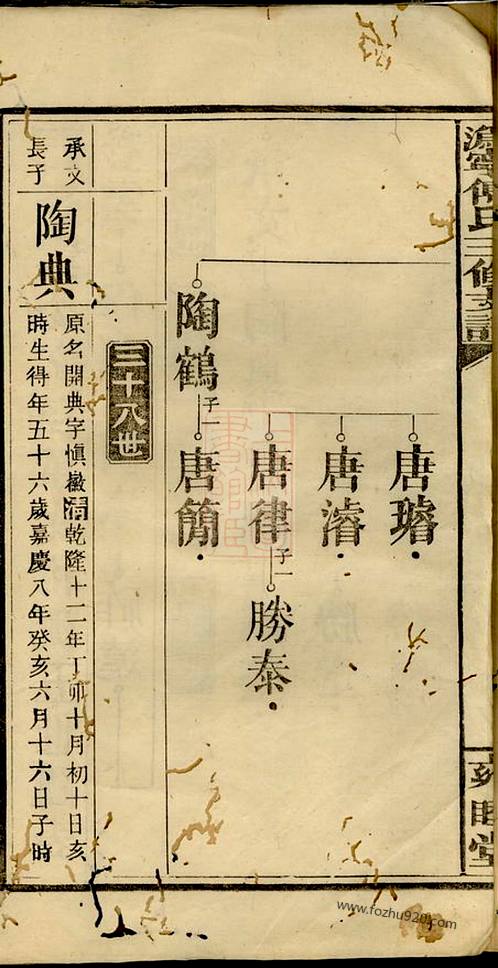 氏三修支譜
堂
唐璿
唐濬
唐律
子一
勝泰
陶鶴
子一
唐簡
三十八世
承文
長子
陶典
原名開典字慎徽清乾隆十二年丁卯十月初十日亥
時生得年五十六歲嘉慶八年癸亥六月十六日子時
www.fozhu920.com